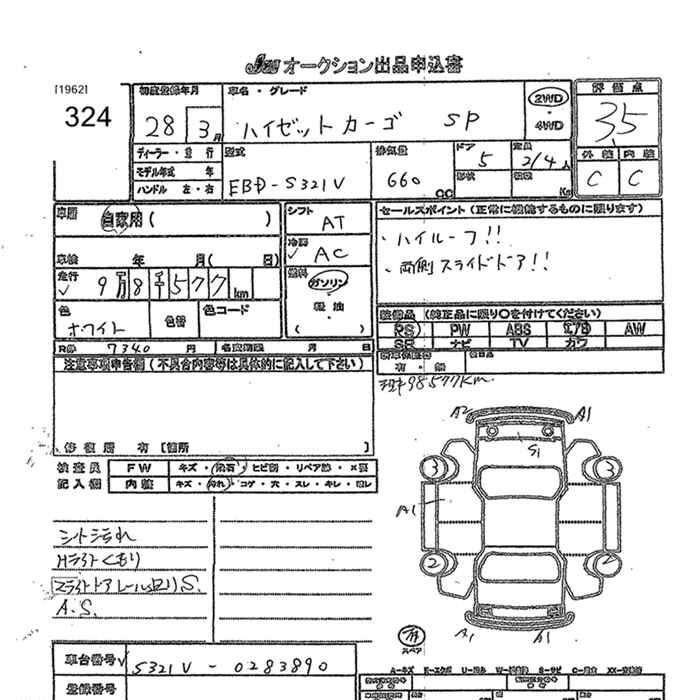 JAW オークション出品申込書
[1962]
324
初度登録年月
28 3月
車名・グレード
ハイゼットカーゴ SP
2WD
・
4WD
評価点
3.5
外装 内装
C C
ディーラー・並行
モデル年式 年
ハンドル 左・右
型式
EBD-S321V
排気量
660
CC
ドア
5
形状
定員
2/4人
積載
Kg
車歴
自家用( )
車検 年 月( 日)
走行
9万8千577km
色
ホワイト
色替
色コード
シフト
AT
冷房
AC
燃料
ガソリン
軽油
( )
セールスポイント(正常に機能するものに限ります)
・ハイルーフ!!
・両側スライドドア!!
装備品 (純正品に限り○を付けてください)
PS PW ABS エアB AW
SR ナビ TV カワ
新車保証書
有・無
R券 7340円
名変期限 月 日
現車98577Km
注意事項申告欄(不具合内容等は具体的に記入して下さい)
修復歴 有 [箇所 ]
検査員
記入欄
FW キズ・飛石・ヒビ割・リペア跡・X要
内装 キズ・汚れ・コゲ・穴・スレ・キレ・
シート汚れ
Hライトくもり
スライドドアレール回りS.
A.S.
A2 A1
S1
3 3
A1
2 2
A1 A1
スペア
車台番号 S321V-0283890
登録番号
A-キズ E-エクボ U-凹み W-補修跡 S-サビ C-腐食 XX-交換済